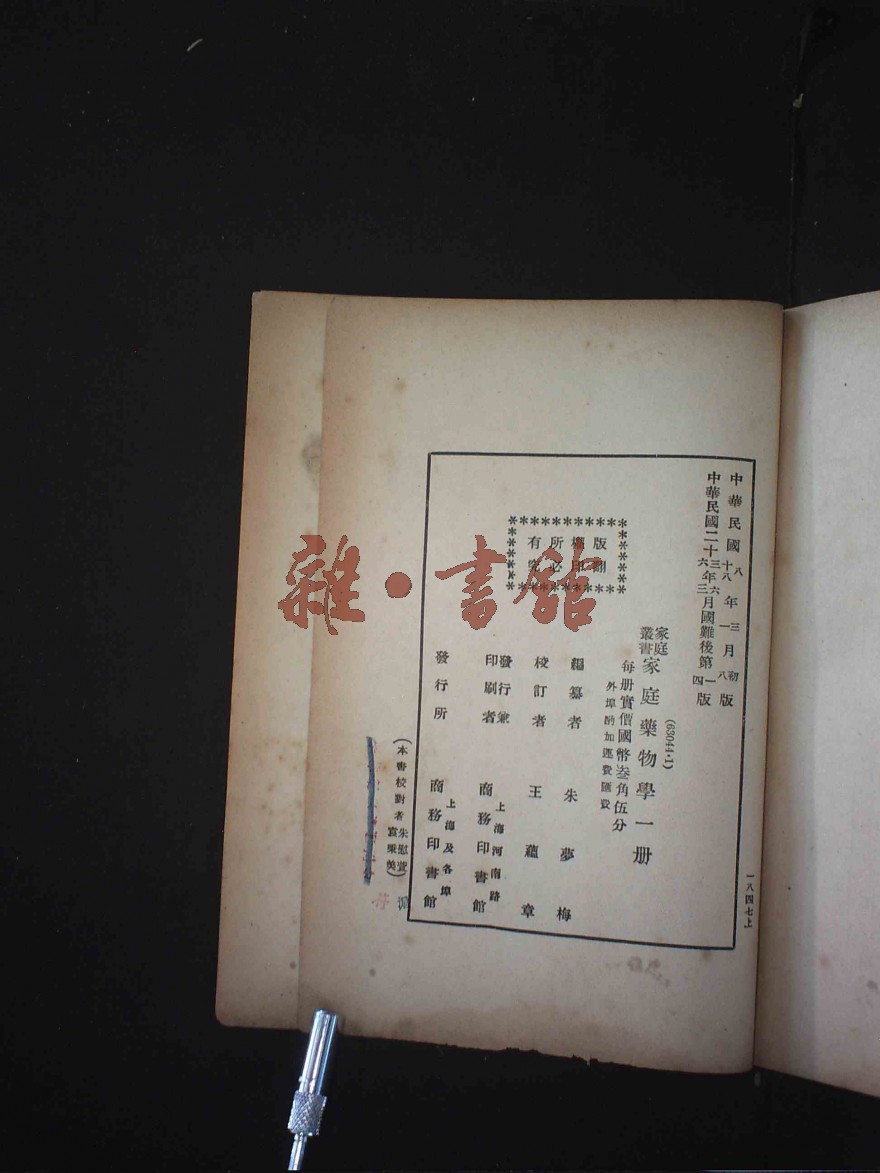 中華民國八十八年三一月初八版
中華民國二十三六年六三月國難後第一四版
(63044·1)
家庭叢書 家庭藥物學一册
每册實價國幣叁角伍分
外埠酌加運費匯費
版權所有
翻印必究
編纂者 朱夢梅
校訂者 王蘊章
發行兼印刷者 上海河南路 商務印書館
發行所 上海及各埠 商務印書館
(本書校對者朱慰萱富秉美)
一八四七上
雜·書館